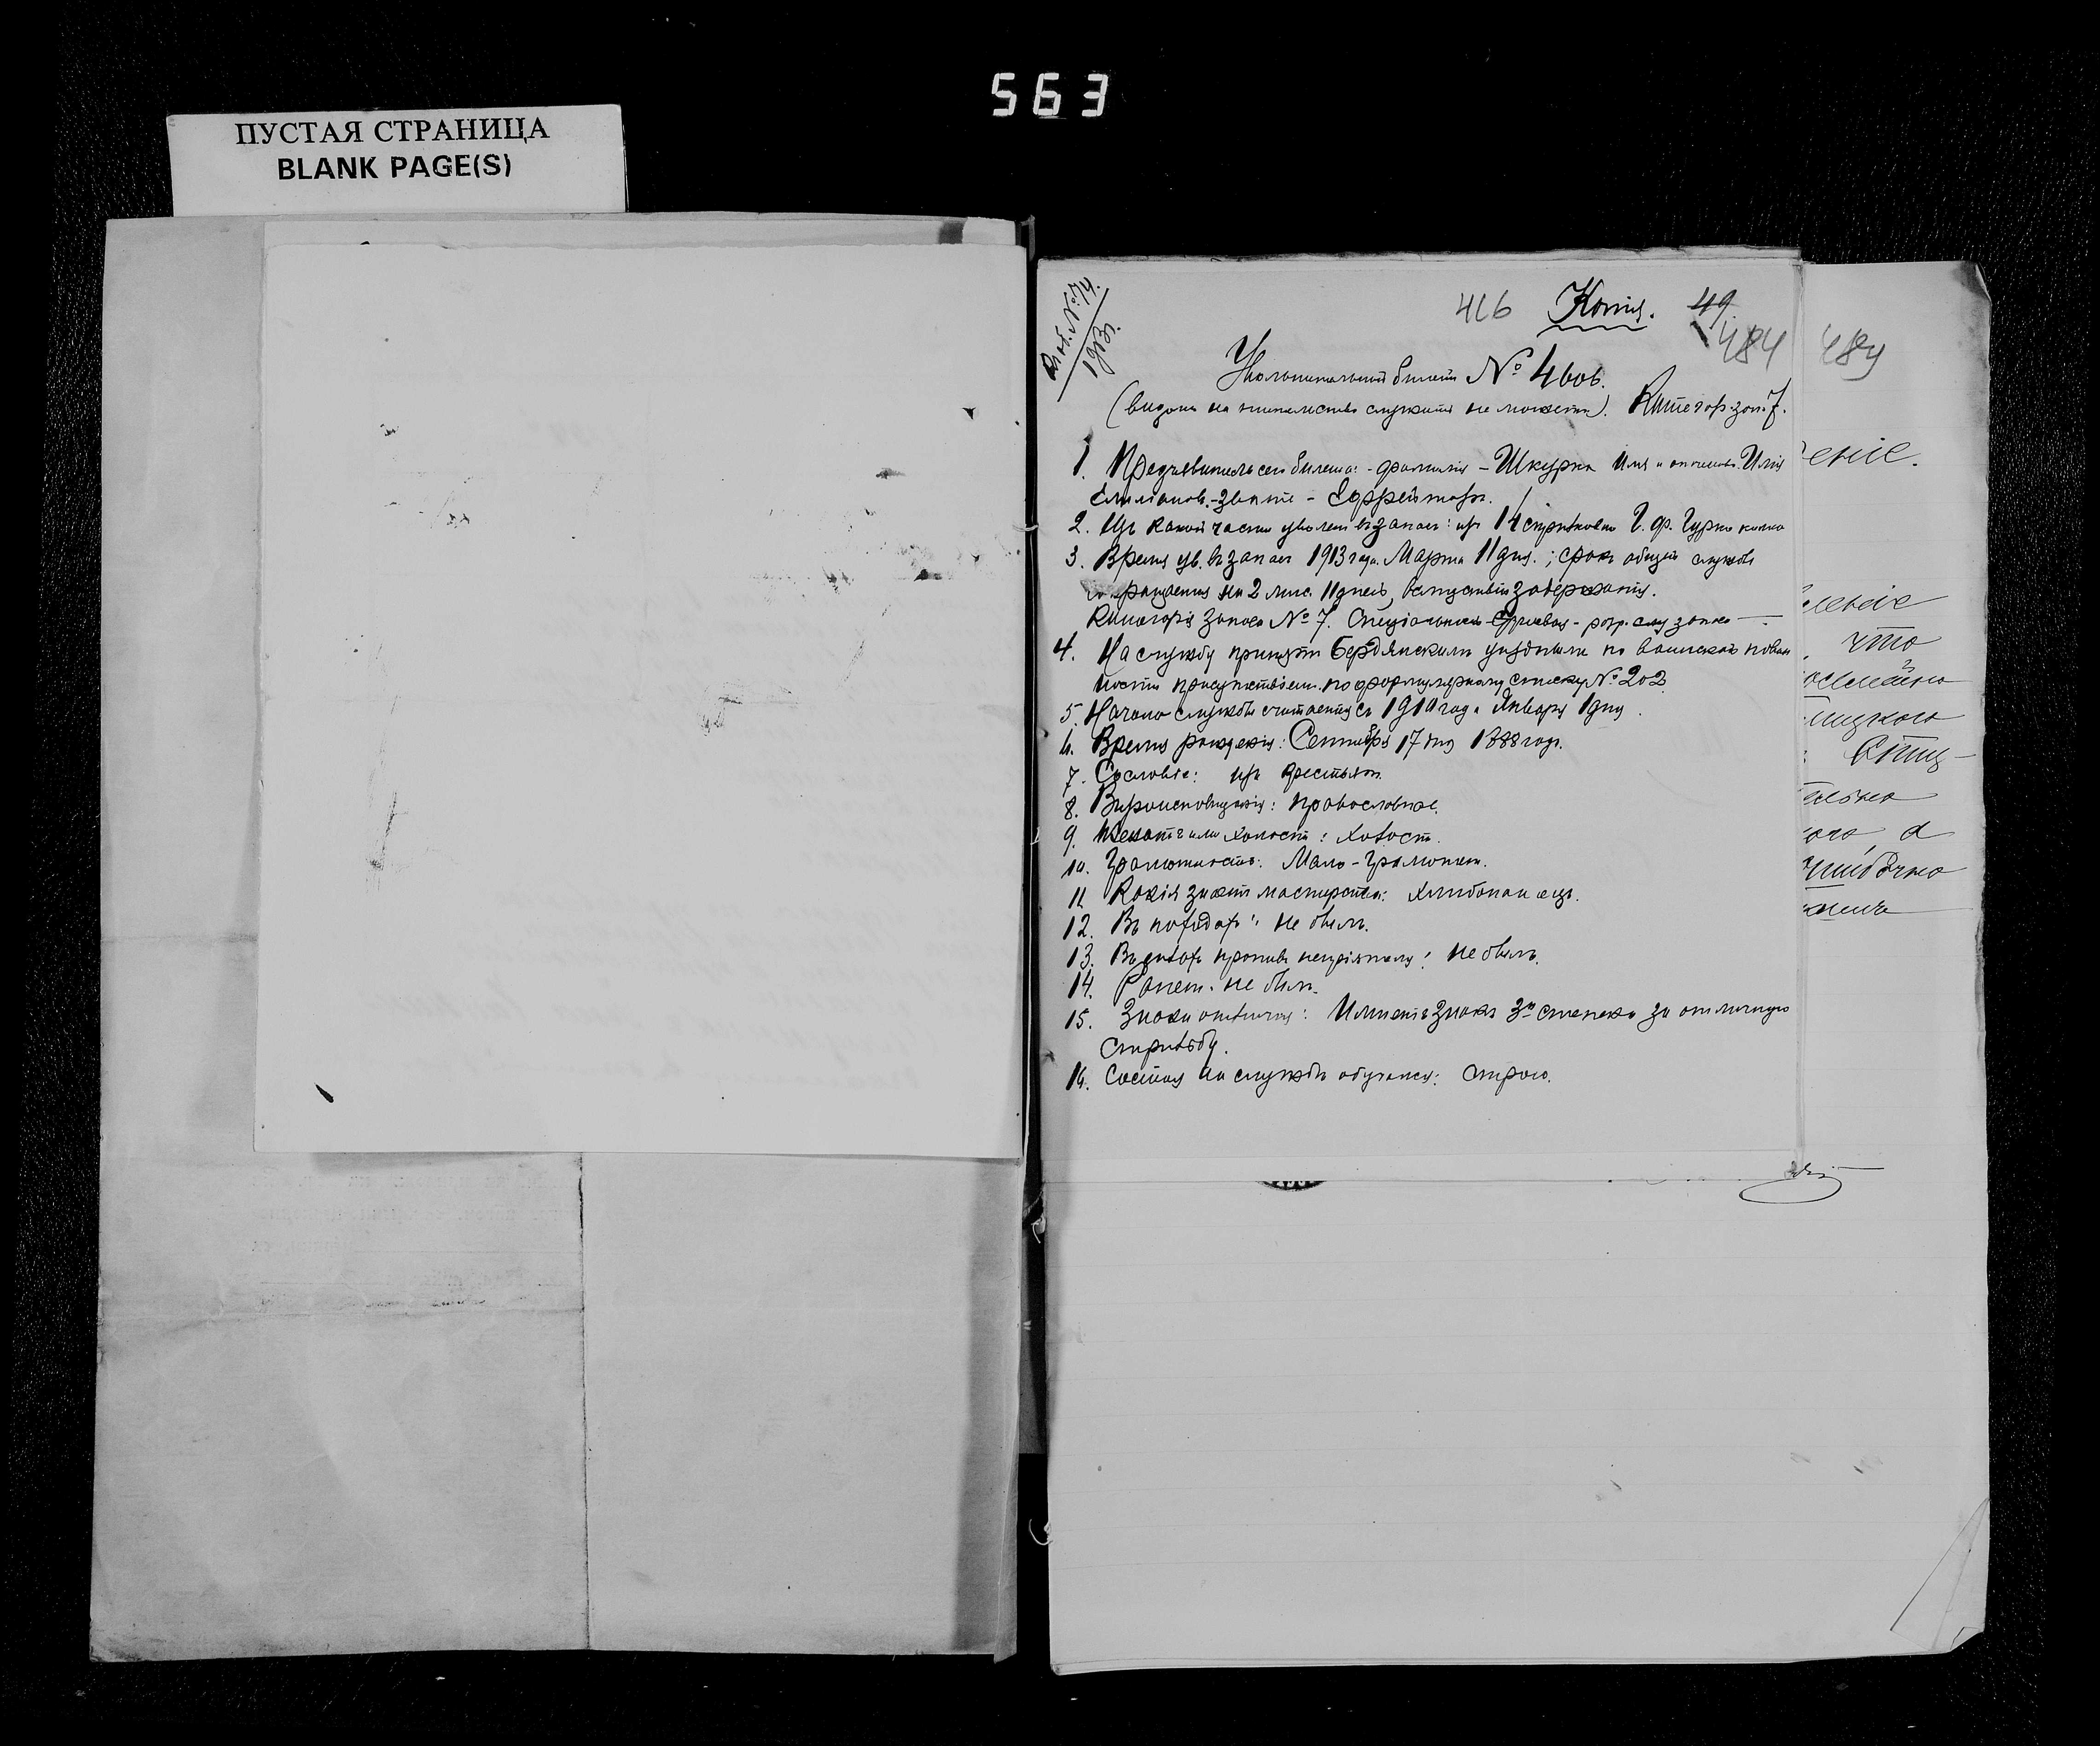 563
ПУСТАЯ СТРАНИЦА
BLANK PAGE(S)
№ 74.
1913г.
416 Копія. 49
484 484
Увольнительный билетъ № 4606.
(видомъ на жительство служить не можетъ). Категор. зап. 7.
1. Предъявитель сего билета: - фамилія - Шкурка Имя и отчество Илія
званіе - Ефрейторъ.
2. Изъ какой части уволенъ въ запасъ: изъ 14 стрѣлковаго Г. Ф. Гурко полка
3. Время ув. въ запасъ 1913 года Марта 11 дня.; срокъ общей службы
сокращенія на 2 мѣс. 11 дней, вслѣдствіи задержанія.
Категорія запаса № 7. Спеціальность Строевая - разр. слу запаса —
4. На службу принятъ Бердянскимъ уѣзднымъ по воинской повин
ности присутствіемъ по формулярному списку № 202
5. Начало службы считается съ 1910 года Января 1 дня.
6. Время рожденія: Сентября 17 дня 1888 года.
7. Сословіе: изъ крестьян.
8. Вѣроисповѣданія: православнае.
9. Женатъ или холостъ: Холост.
10. Грамотность: Мало-грамотен.
11. Какія знаетъ мастерства: Хлѣбопашецъ.
12. Въ походахъ: не былъ.
13. Въ дѣлахъ противъ непріятеля: не былъ.
14. Ранен: не былъ.
15. Знаки отличія: Имѣетъ Знакъ 3й степени за отличную
Стрѣльбу.
16. Состоя на службѣ обучался: Строю.
еніе.
леніе
что
ницкаго
ого, а